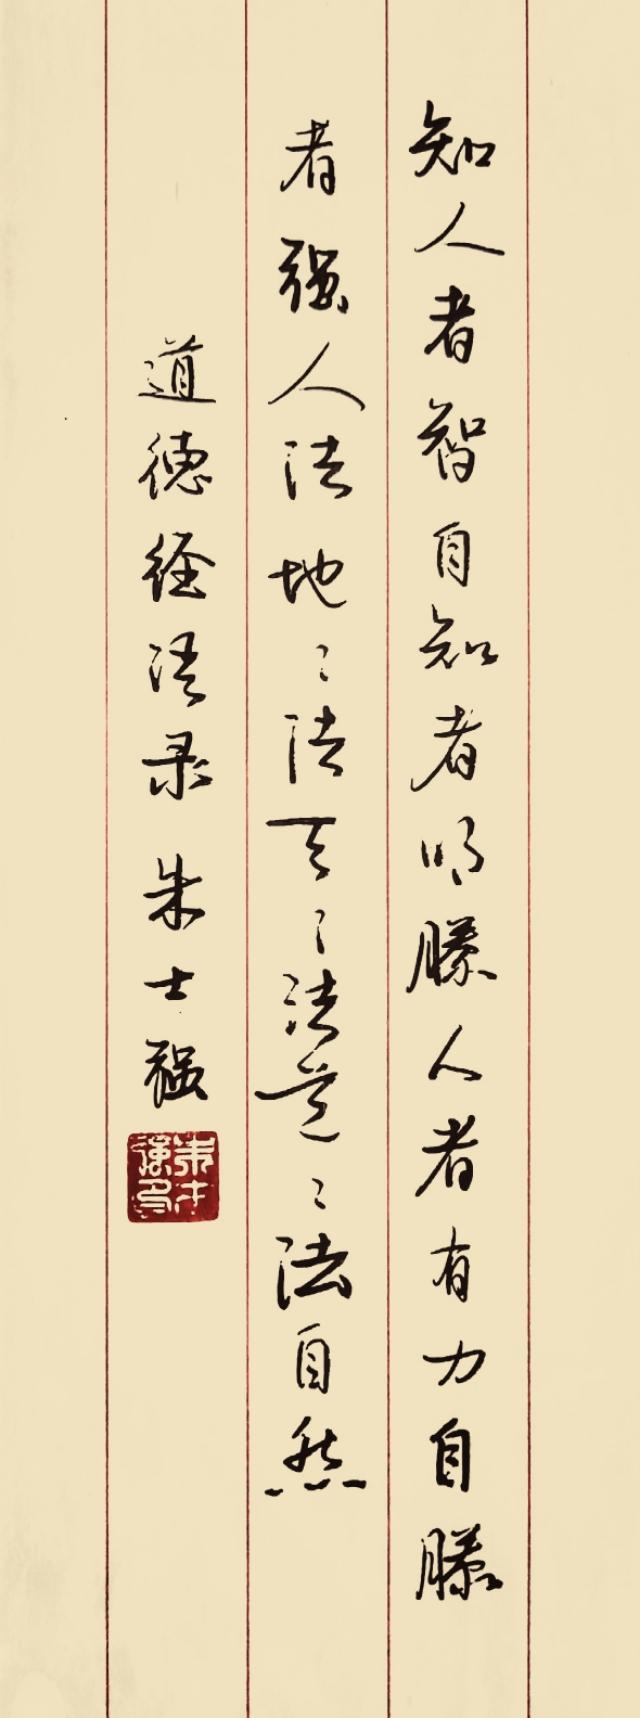 知人者智自知者明勝人者有力自勝
者强人法地〻法天〻法道〻法自然
道德经语录 朱士强
朱士强印